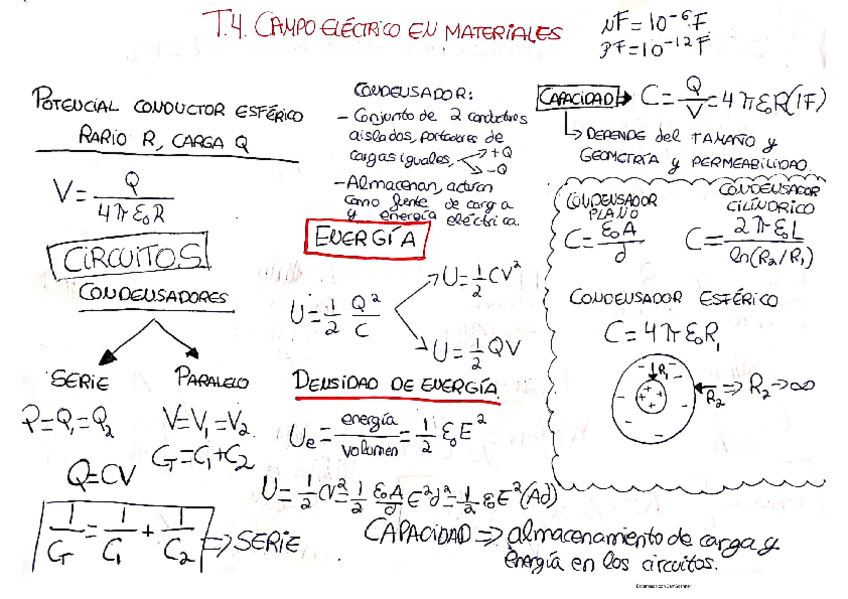 T.4. CAMPO ELÉCTRICO EN MATERIALES
μF = 10⁻⁶F
pF = 10⁻¹² F
POTENCIAL CONDUCTOR ESFÉRICO
RARIO R, CARGA Q
V = Q / 4πε₀R
CIRCUITOS
CONDENSADORES
SERIE
PARALELO
P = Q₁ = Q₂
V = V₁ = V₂
C_T = C₁ + C₂
Q = CV
1/C_T = 1/C₁ + 1/C₂ ⇒ SERIE
CONDENSADOR:
- Conjunto de 2 conductores
aislados, portadores de
cargas iguales, +Q
-Q
- Almacenan, actúan
como fuente de carga
y energía eléctrica.
ENERGÍA
U = 1/2 Q²/C
U = 1/2 CV²
U = 1/2 QV
DENSIDAD DE ENERGÍA
Ue = energía/volumen = 1/2 ε₀E²
U = 1/2 CV² = 1/2 ε₀A/d E²d² = 1/2 ε₀E²(Ad)
CAPACIDAD → C = Q/V = 4πε₀R (1F)
DEPENDE del TAMAÑO y
GEOMETRÍA y PERMEABILIDAD.
CONDENSADOR
PLANO
C = ε₀A / d
CONDENSADOR
CILÍNDRICO
C = 2πε₀L / ln(R₂/R₁)
CONDENSADOR ESFÉRICO
C = 4πε₀R₁
R₁
R₂ ⇒ R₂ → ∞
CAPACIDAD ⇒ almacenamiento de carga y
energía en los circuitos.
Escaneado con CamScanner